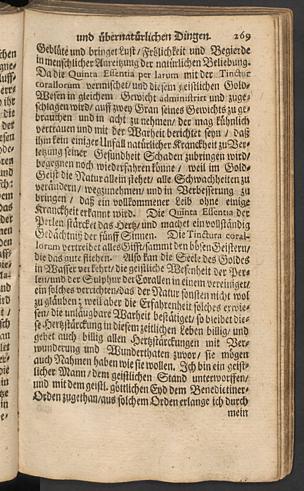 und übernatürlichen Dingen. 269
Geblüte und bringet Lust / Fröhlichkeit und Begierde
in menschlicher Anreitzung der natürlichen Beliebung.
Da die Quinta Essentia perlarum mit der Tinctur
corallorum vermischet / und diesem geistlichen Gold-
Wesen in gleichem Gewicht administrirt und zuge-
schlagen wird / auff zwey Gran seines Gewichts zu ge-
brauchen und in acht zu nehmen / der mag kühnlich
vertrauen und mit der Warheit berichtet seyn / daß
ihm kein einiger Unfall natürlicher Kranckheit zu Ver-
letzung seiner Gesundheit Schaden zubringen wird /
begegnen noch wiederfahren könne / weil im Gold-
Geist die Natur allein stehet / alle Schwachheiten zu
verändern / wegzunehmen / und in Verbesserung zu
bringen / daß ein vollkommener Leib ohne einige
Kranckheit erkannt wird. Die Quinta Essentia der
Perlen stärcket das Hertz / und machet ein vollständig
Gedächtniß der fünff Sinnen. Die Tinctura coral-
lorum vertreibet alles Gifft / sammt den bösen Geistern /
die das gute fliehen. Also kan die Seele des Goldes
in Wasser verkehrt / die geistliche Wesenheit der Per-
len / und der Sulphur der Corallen in einem vereiniget /
ein solches verrichten / das der Natur sonsten nicht wol
zu gläuben; weil aber die Erfahrenheit solches erwie-
sen / die unläugbare Warheit bestätiget / so bleibet die-
se Hertzstärckung in diesem zeitlichen Leben billig / und
gehet auch billig allen Hertzstärckungen mit Ver-
wunderung und Wunderthaten zuvor / sie mögen
auch Nahmen haben wie sie wollen. Ich bin ein geist-
licher Mann / dem geistlichen Stand unterworffen /
und mit dem geistl. göttlichen Eyd dem Benedictiner-
Orden zugethan / aus solchem Orden erlange ich durch
mein